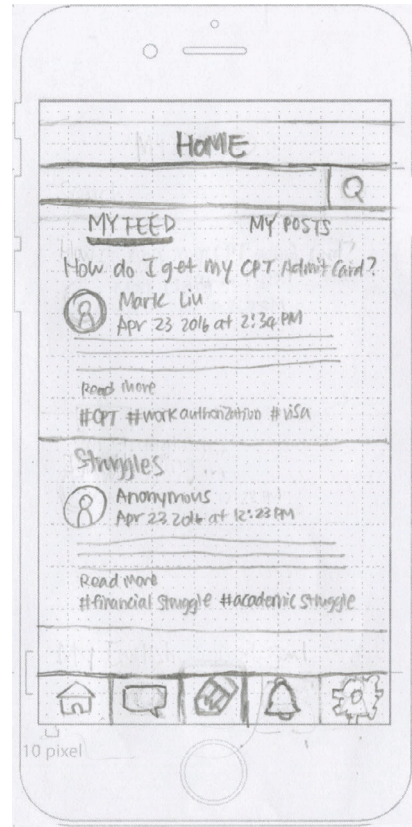 HOME
MY FEED MY POSTS
How do I get my CPT Admit Card?
Mark Liu
Apr 23 2016 at 2:34 PM
Read more
#CPT #work authorization #visa
Struggles
Anonymous
Apr 23 2016 at 12:23 PM
Read more
#financial struggle #academic struggle
10 pixel